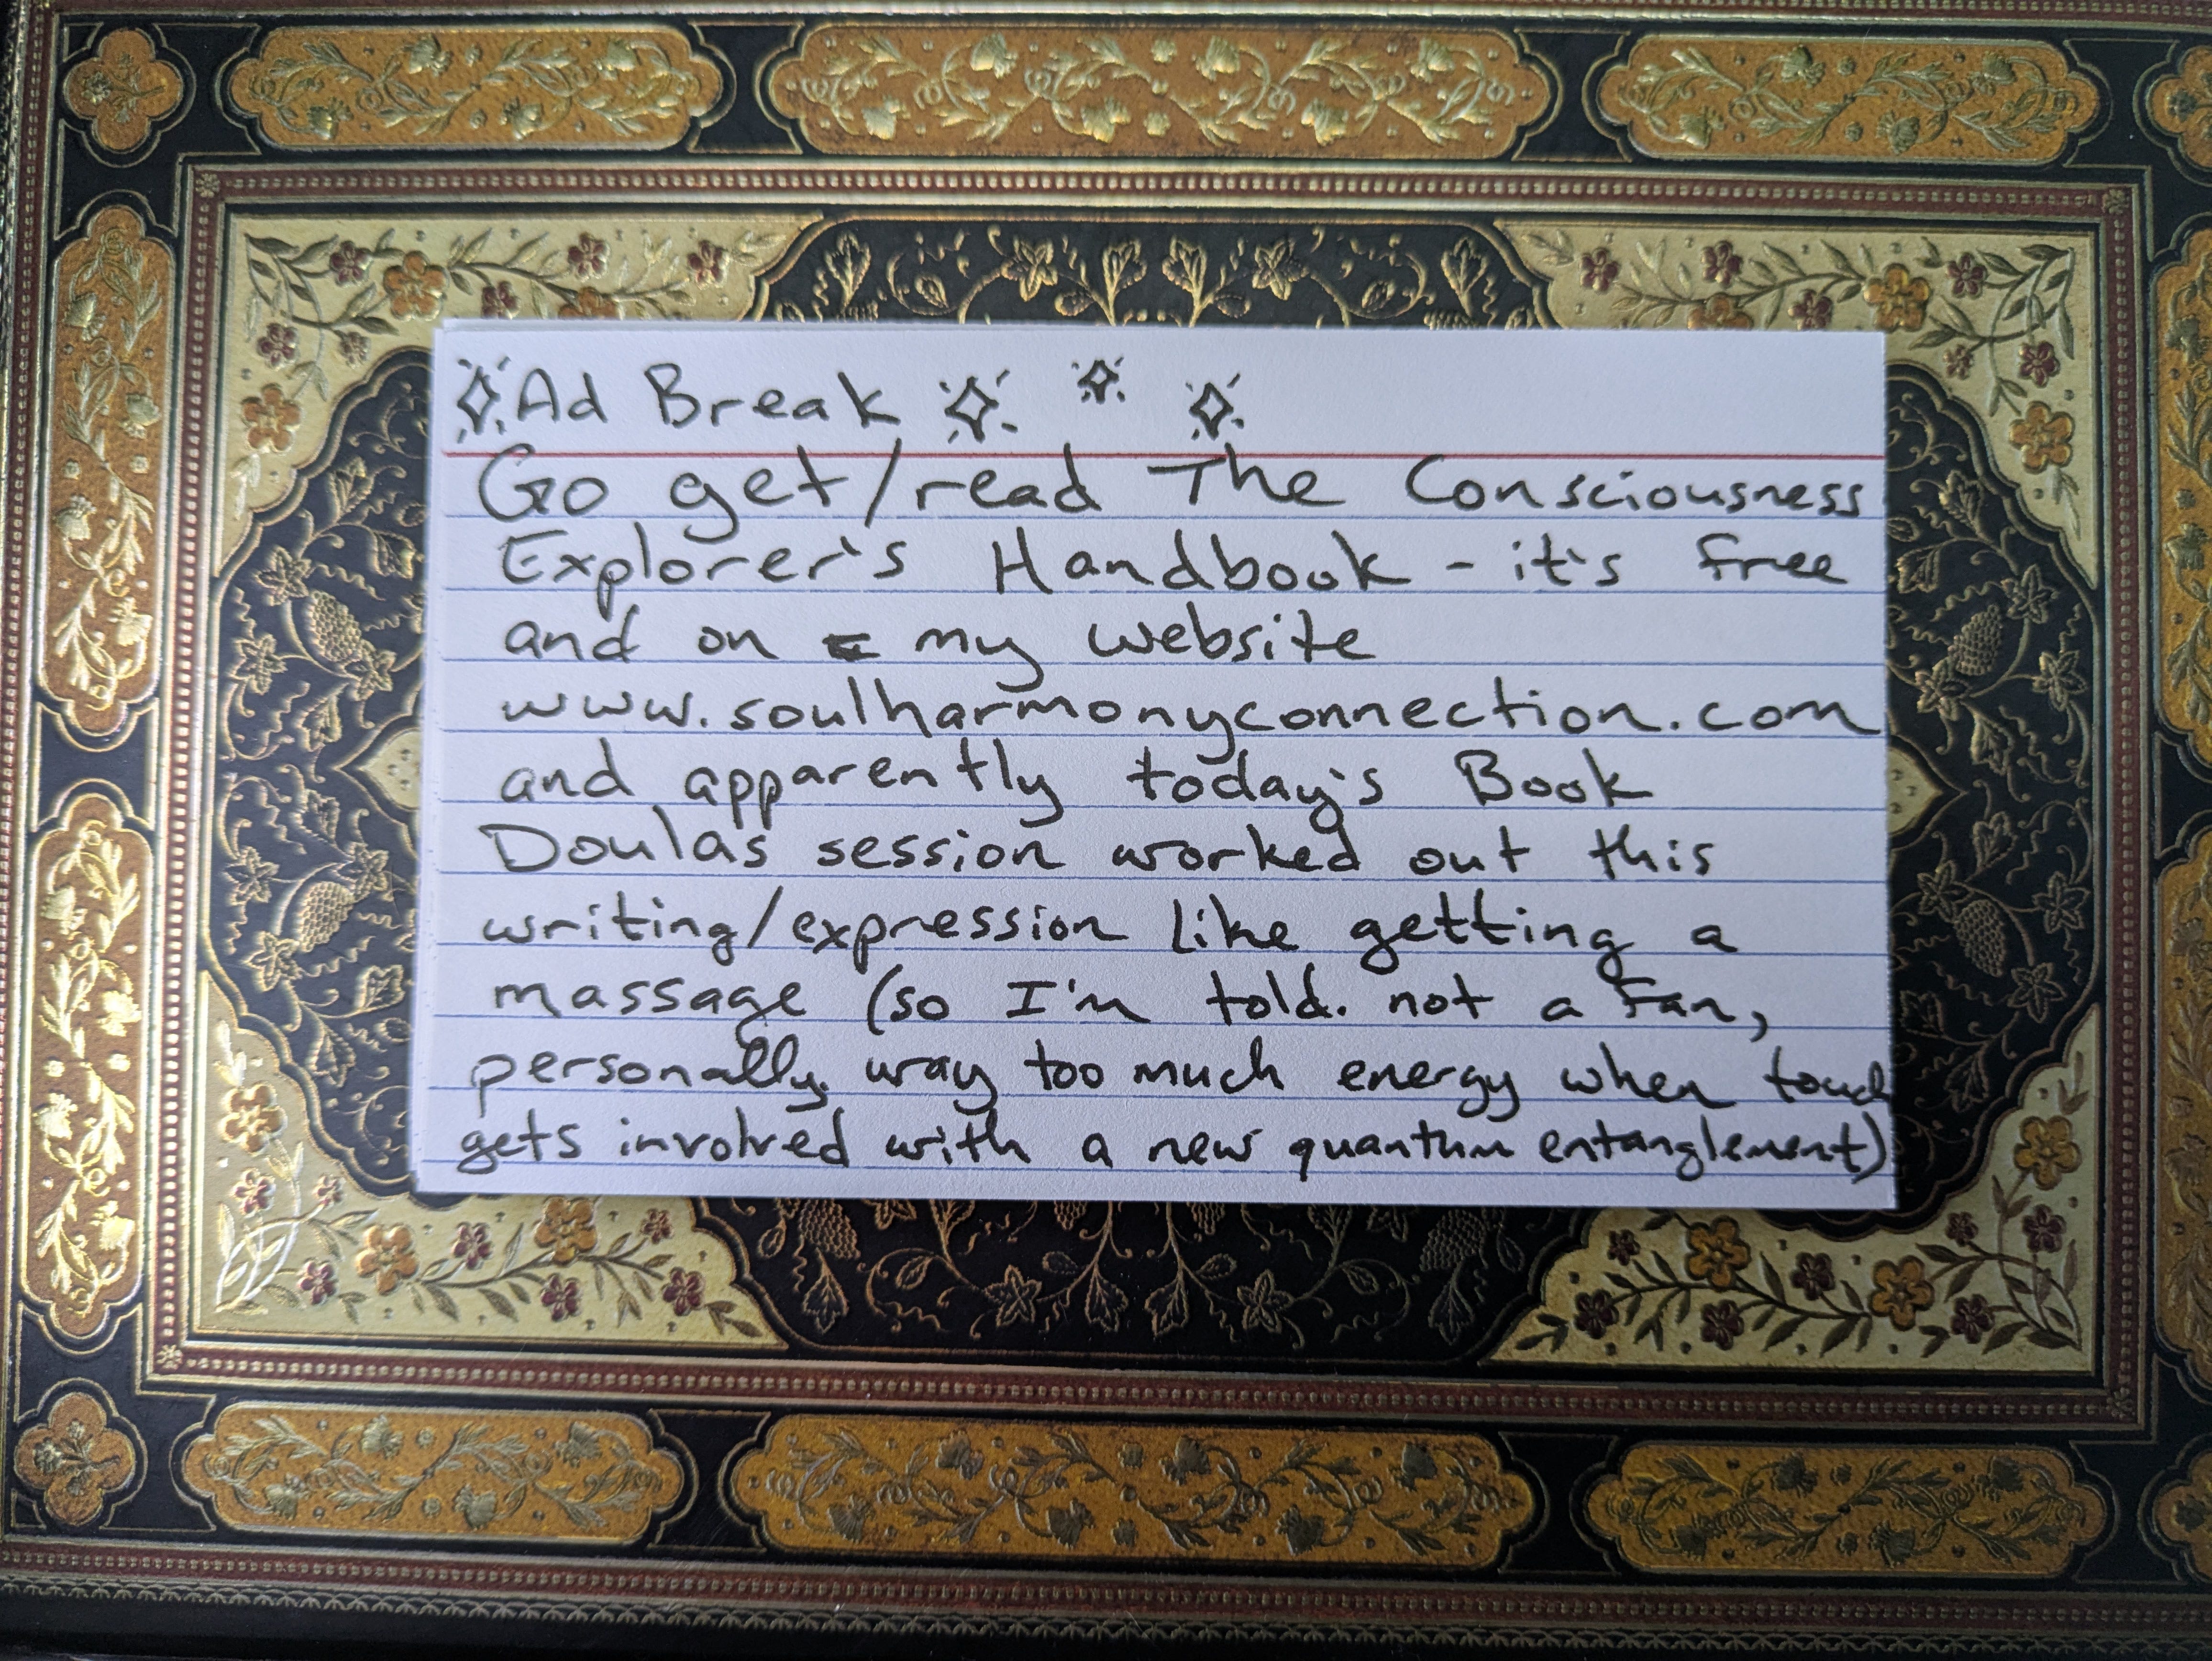 Ad Break
Go get/read The Consciousness
Explorer's Handbook - it's free
and on my website
www.soulharmonyconnection.com
and apparently today's Book
Doulas session worked out this
writing/expression like getting a
massage (so I'm told. not a fan,
personally, way too much energy when touch
gets involved with a new quantum entanglement)